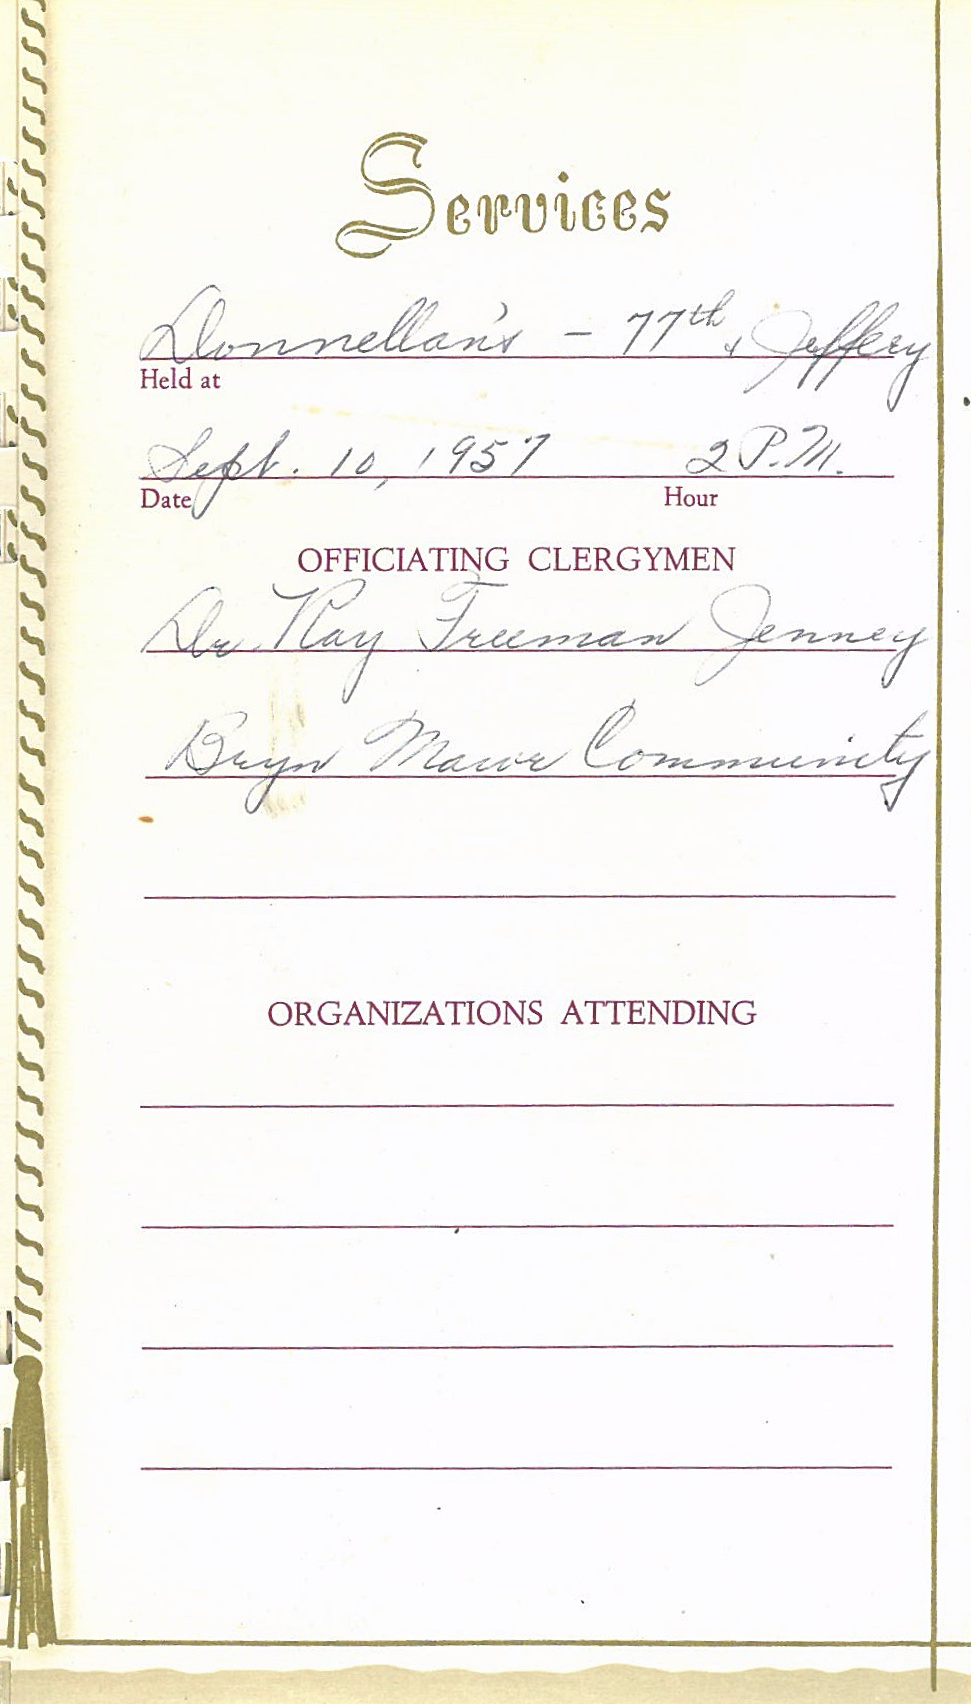 Services
Donnellan's - 77th & Jeffery
Held at
Sept. 10, 1957 2 P.M.
Date Hour
OFFICIATING CLERGYMEN
Dr. Ray Freeman Jenney
Bryn Mawr Community
ORGANIZATIONS ATTENDING